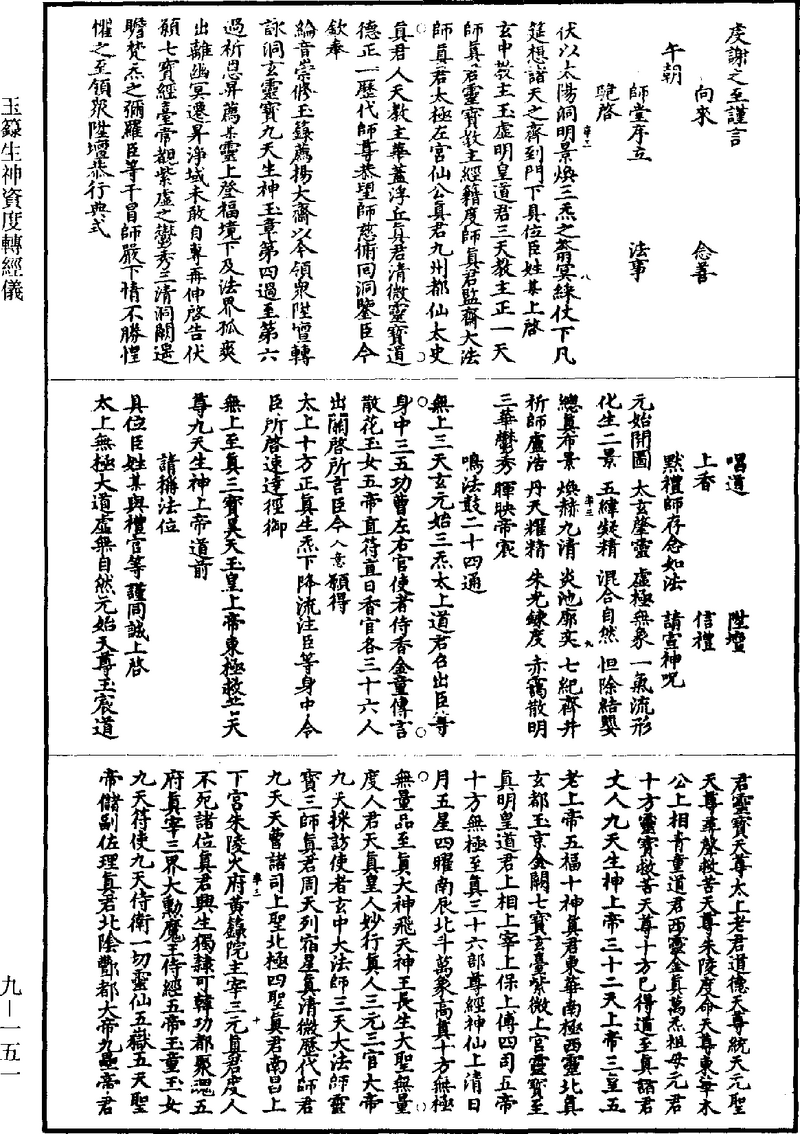 虔謝之至謹言
向來　念善
午朝
師堂序立　法事
跪啓
伏以太陽洞明景煥三炁之霄冥綠仗下凡
筵想諸天之齊到門下具位臣姓某上啓
玄中教主玉虛明皇道君三天教主正一天
師真君靈寶教主經籍度師真君監齋大法
師真君太極左宮仙公真君九州都仙太史
真君人天教主華蓋浮丘真君清微靈寶道
德正一歷代師尊恭望師慈俯回洞鑒臣今
欽奉
綸音崇修玉籙薦揚大齋以今領衆陞壇轉
詠洞玄靈寶九天生神玉章第四過至第六
過祈恩昇薦某靈上登福境下及法界孤爽
出離幽冥遷昇淨域未敢自專再伸啓告伏
願七寶經臺常觀紫虛之鬱秀三清洞闕遥
瞻梵炁之彌羅臣等干冒師嚴下情不勝惶
懼之至領衆陞壇恭行典式
唱道　陞壇
上香　信禮
默禮師存念如法　請宣神呪
元始開圖　太玄肇靈　虛極無象　一氣流形
化生二景　五緯凝精　混合自然　怛除結嬰
總真布景　煥赫九清　炎池廓奕　七紀齊并
祈師盧浩　丹天耀精　朱光鍊度　赤靄散明
三華鬱秀　暉映帝宸
鳴法鼓二十四通
無上三天玄元始三炁太上道君召出臣等
身中三五功曹左右官使者侍香金童傳言
散花玉女五帝直符直日香官各三十六人
出關啓所言臣今入意願得
太上十方正真生炁下降流注臣等身中令
臣所啓速達徑御
無上至真三寶昊天玉皇上帝東極救苦天
尊九天生神上帝道前
請稱法位
具位臣姓某與禮官等謹同誠上啓
太上無極大道虛無自然元始天尊玉宸道
君靈寶天尊太上老君道德天尊統天元聖
天尊尋聲救苦天尊朱陵度命天尊東華木
公上相青童道君西靈金真萬炁祖母元君
十方靈寶救苦天尊十方已得道至真諸君
丈人九天生神上帝三十二天上帝三皇五
老上帝五福十神真君東華南極西靈北真
玄都玉京金闕七寶玄臺紫微上宮靈寶至
真明皇道君上相上宰上保上傅四司五帝
十方無極至真三十六部尊經神仙上清日
月五星四曜南辰北斗萬象高真十方無極
無量品至真大神飛天神王長生大聖無量
度人君天真皇人妙行真人三元三官大帝
九天採訪使者玄中大法師三天大法師靈
寶三師真君周天列宿星真清微歷代師君
九天天曹諸司上聖北極四聖真君南昌上
下宮朱陵火府黃籙院主宰三元真君度人
不死諸位真君與生獨隸可韓功都聚䰟五
府真宰三界大勳魔王侍經五帝玉童玉女
九天符使九天侍衛一切靈仙五嶽五天聖
帝儲副佐理真君北陰酆都大帝九壘帝君
玉籙生神資度轉經儀
九－一五一